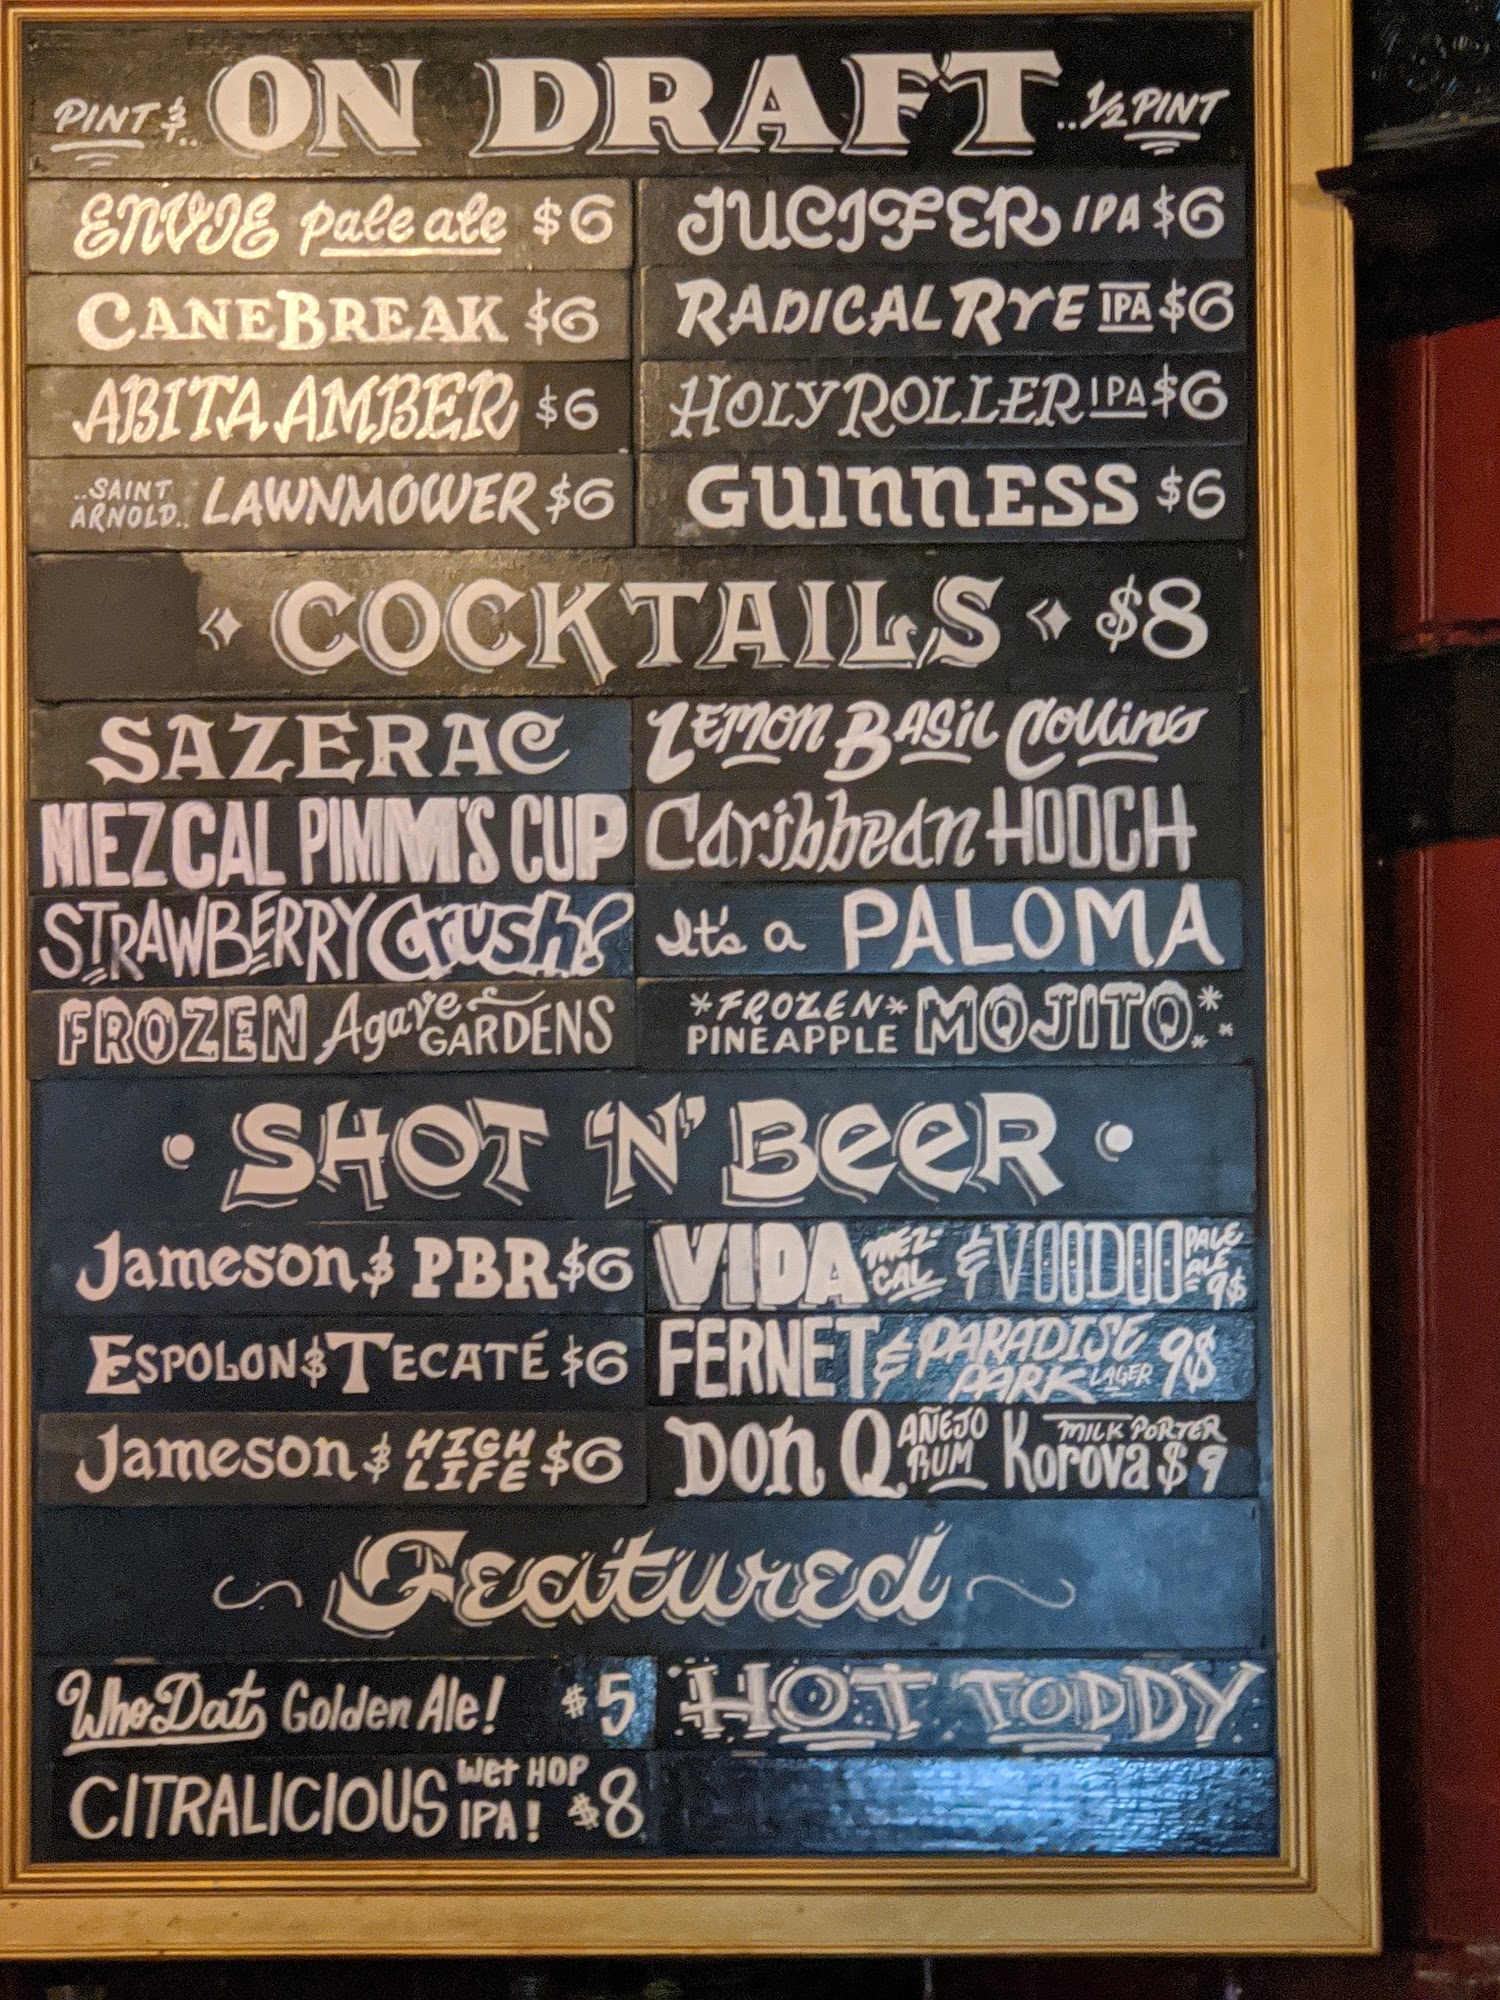 PINT &.. ON DRAFT ..1/2 PINT
ENVIE pale ale $6
JUCIFER IPA $6
CANEBREAK $6
RADICAL RYE IPA $6
ABITA AMBER $6
HOLY ROLLER IPA $6
..SAINT ARNOLD.. LAWNMOWER $6
GUINNESS $6
COCKTAILS $8
SAZERAC
LEMON BASIL Collins
MEZCAL PIMM'S CUP
Caribbean HOOCH
STRAWBERRY Crush!
It's a PALOMA
FROZEN Agave GARDENS
*FROZEN* PINEAPPLE MOJITO
SHOT 'N' BEER
Jameson & PBR $6
VIDA MEZ-CAL & VOODOO PALE ALE 9$
ESPOLON & TECATÉ $6
FERNET & PARADISE PARK LAGER 9$
Jameson & HIGH LIFE $6
Don Q AÑEJO RUM Korova MILK PORTER $9
Featured
Who Dats Golden Ale! $5
HOT TODDY
CITRALICIOUS Wet HOP IPA! $8